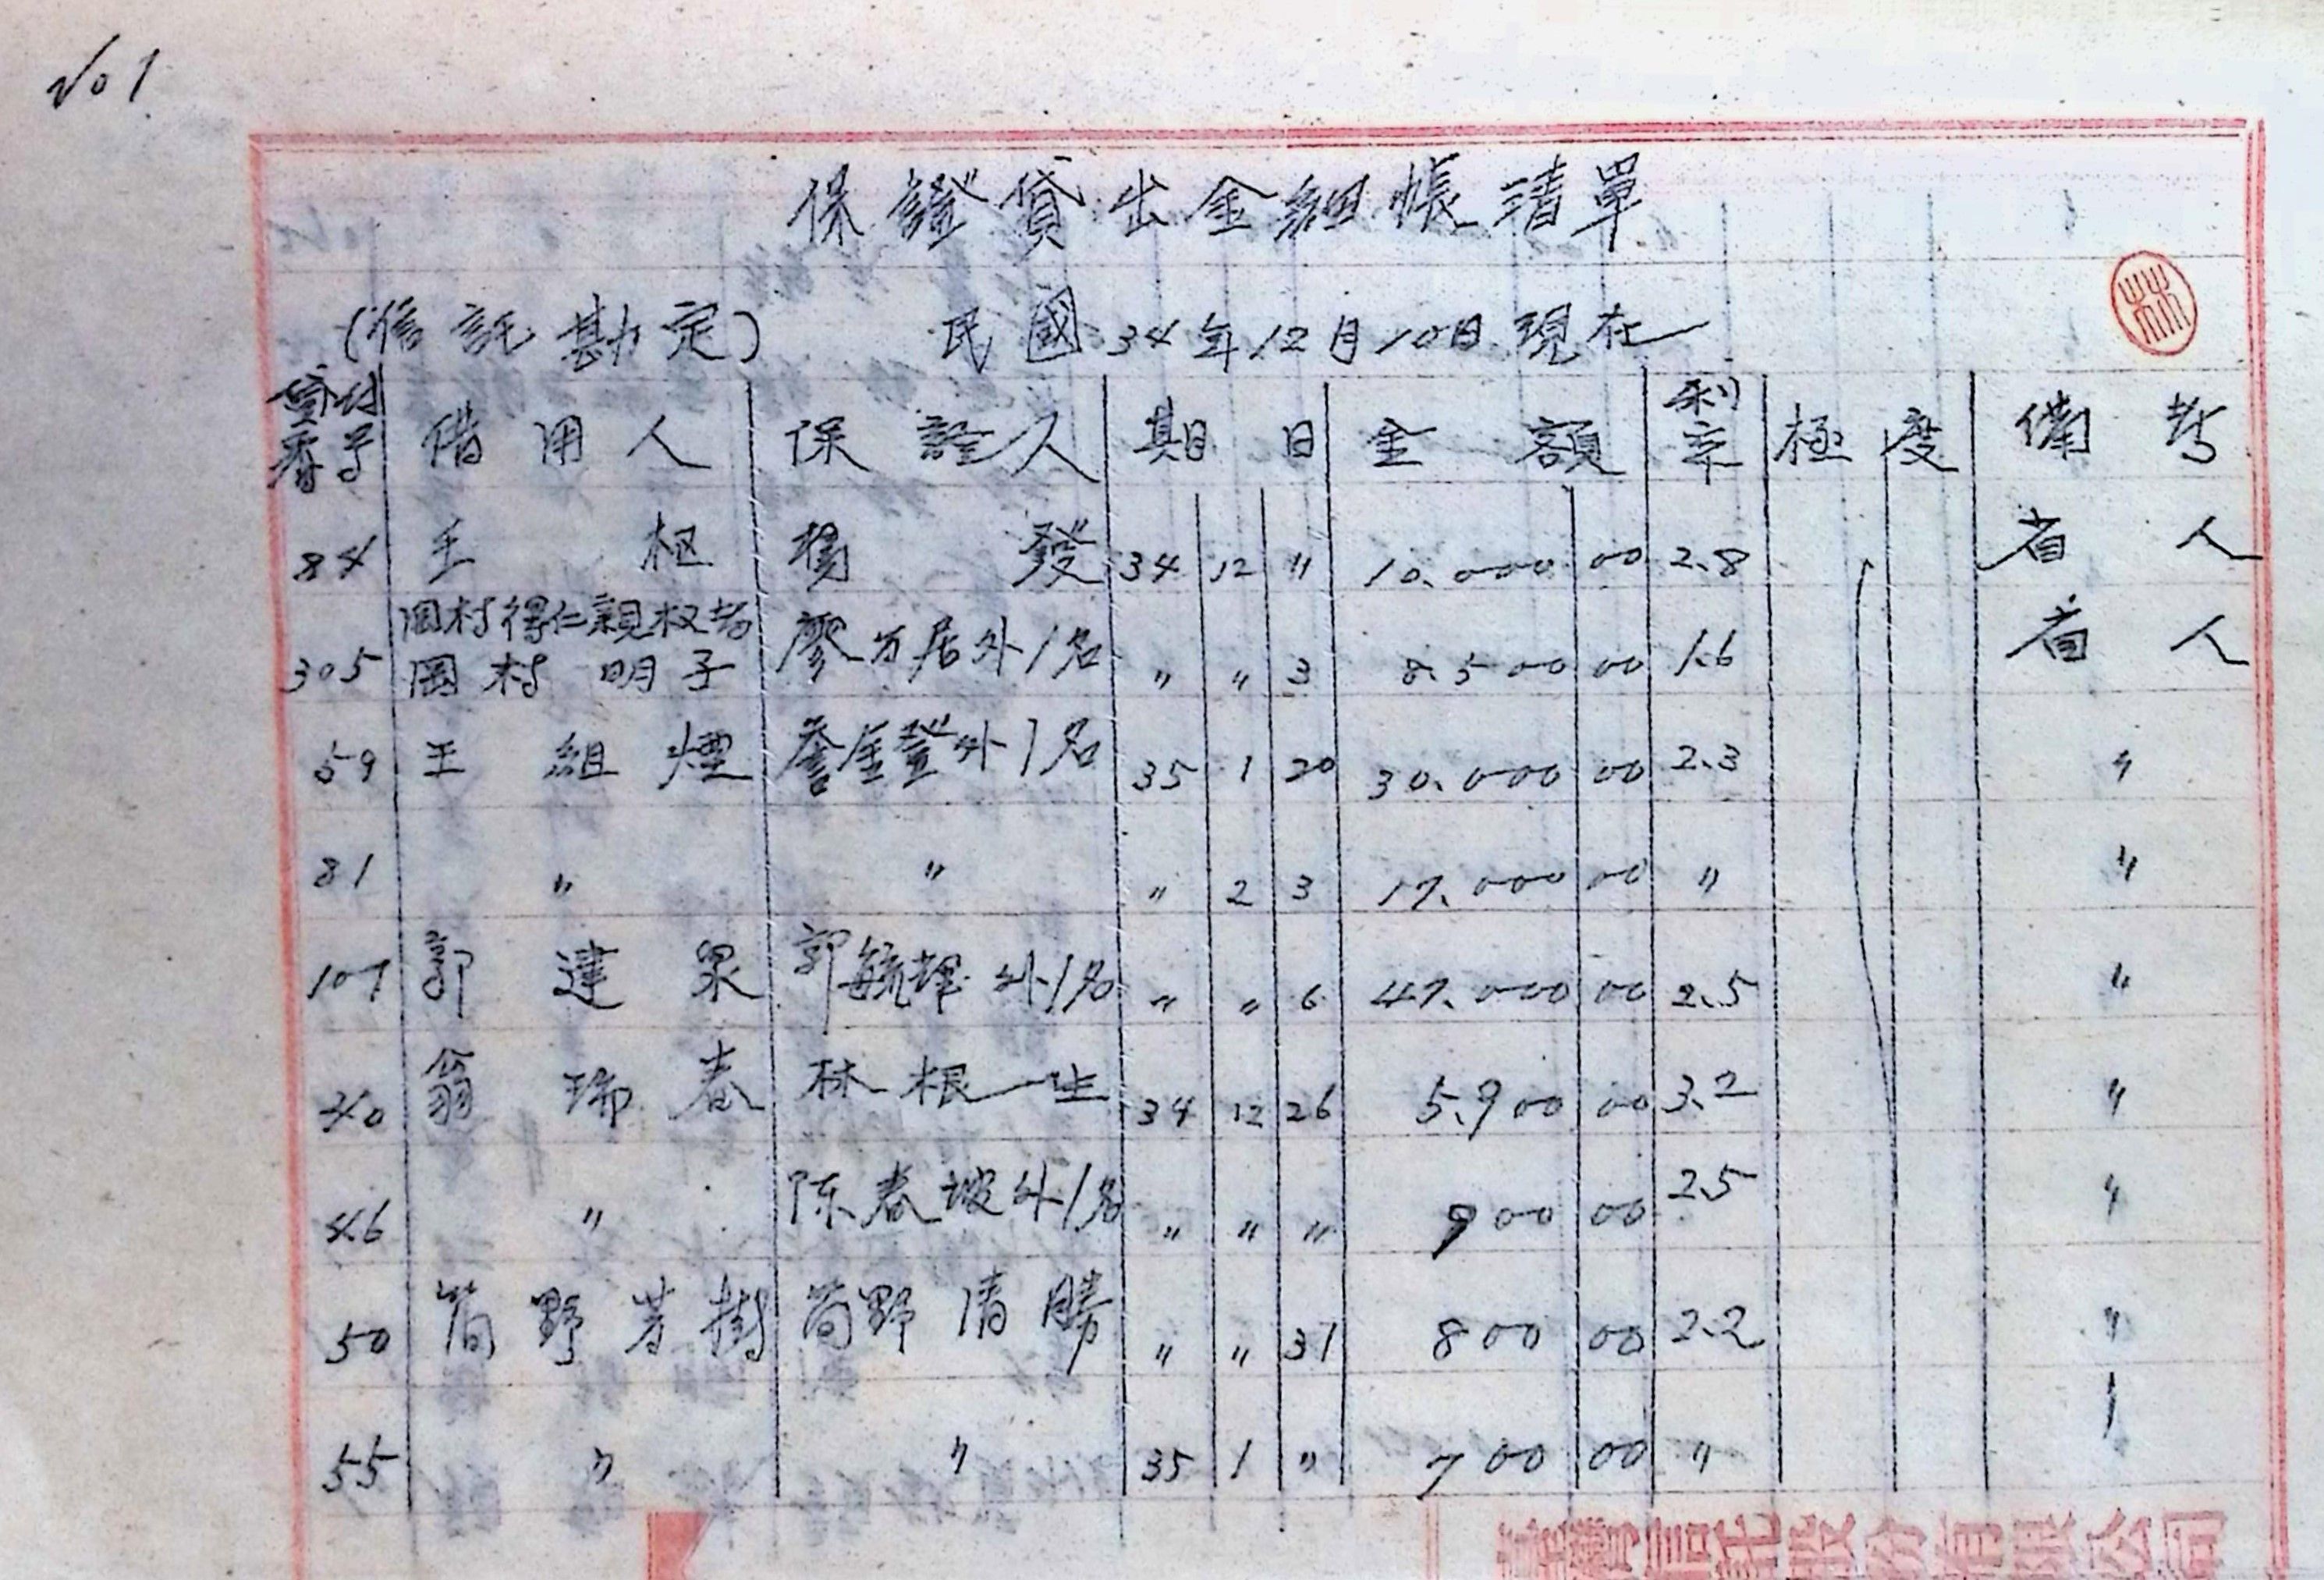 No 1
保證貸出金細帳清單
(信託勘定) 民國34年12月10日現在
貸付番号 借用人 保證人 期日 金額 利率 極度 備考
84 王 枢 楊 發 34 12 11 10.000 00 2.8 省人
岡村得仁親权者
305 岡村明子 廖万居外1名 〃 〃 3 8.500 00 1.6 省人
59 王組煙 詹金登外1名 35 1 20 30.000 00 2.3 〃
81 〃 〃 〃 2 3 17.000 00 〃 〃
107 郭達泉 郭毓 外1名 〃 〃 6 47.000 00 2.5 〃
40 翁瑞春 林根生 34 12 26 5.900 00 3.2 〃
46 〃 陈春坡外1名 〃 〃 〃 900 00 2.5 〃
50 筒野芳樹 筒野清勝 〃 〃 31 800 00 2.2 〃
55 〃 〃 35 1 〃 700 00 〃
臺灣信託股份有限公司